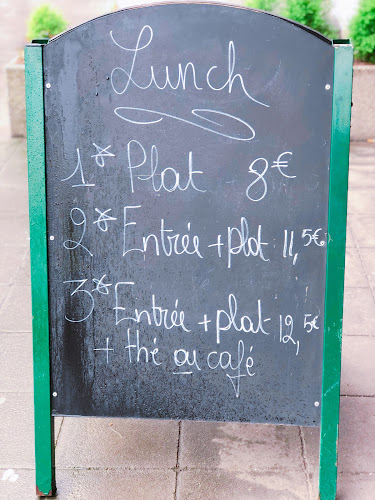 Lunch
1* Plat 8€
2* Entrée + plat 11,5€
3* Entrée + plat 12,5€
+ thé ou café